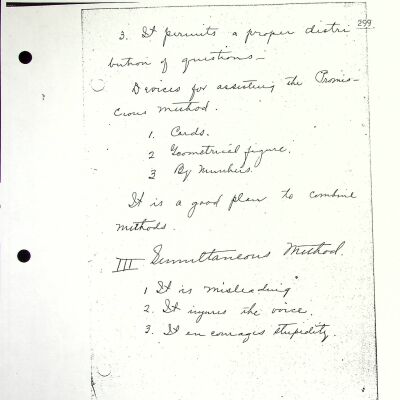 299
3. It permits a proper distri
bution of questions—
Devices for assisting the Promis-
cious method.
1. Cards.
2 Geometrical figure.
3 By Numbers.
It is a good plan to combine
methods.
III Simultaneous Method.
1 It is misleading
2. It injures the voice.
3. It encourages stupidity.